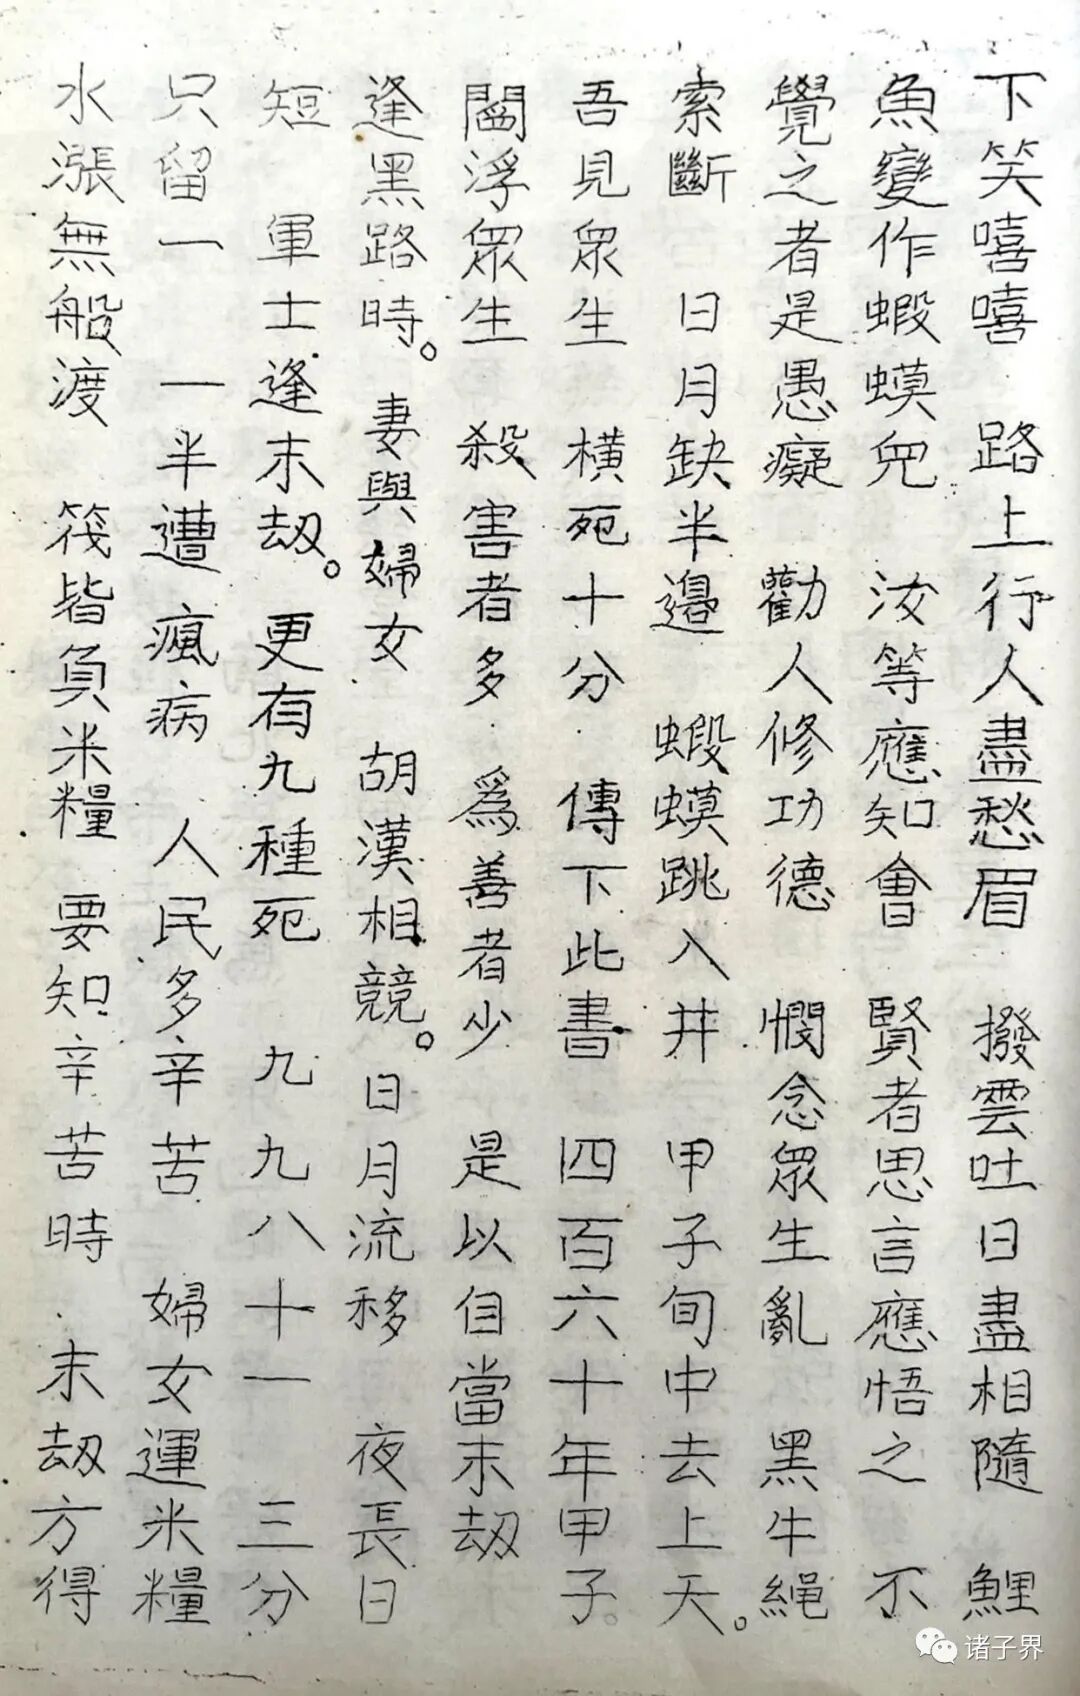 下笑嘻嘻　路上行人盡愁眉　撥雲吐日盡相隨　鯉
魚變作蝦蟆兒　汝等應知會　賢者思言應悟之　不
覺之者是愚癡　勸人修功德　憫念眾生亂　黑牛繩
索斷　日月缺半邊　蝦蟆跳入井　甲子旬中去上天。
吾見眾生　橫死十分　傳下此書　四百六十年甲子。
閻浮眾生　殺害者多　爲善者少　是以自當末劫
逢黑路時。妻與婦女　胡漢相競。日月流移　夜長日
短　軍士逢末劫。更有九種死　九九八十一　三分
只留一　一半遭瘋病　人民多辛苦　婦女運米糧
水漲無船渡　筏皆負米糧　要知辛苦時　末劫方得
诸子界